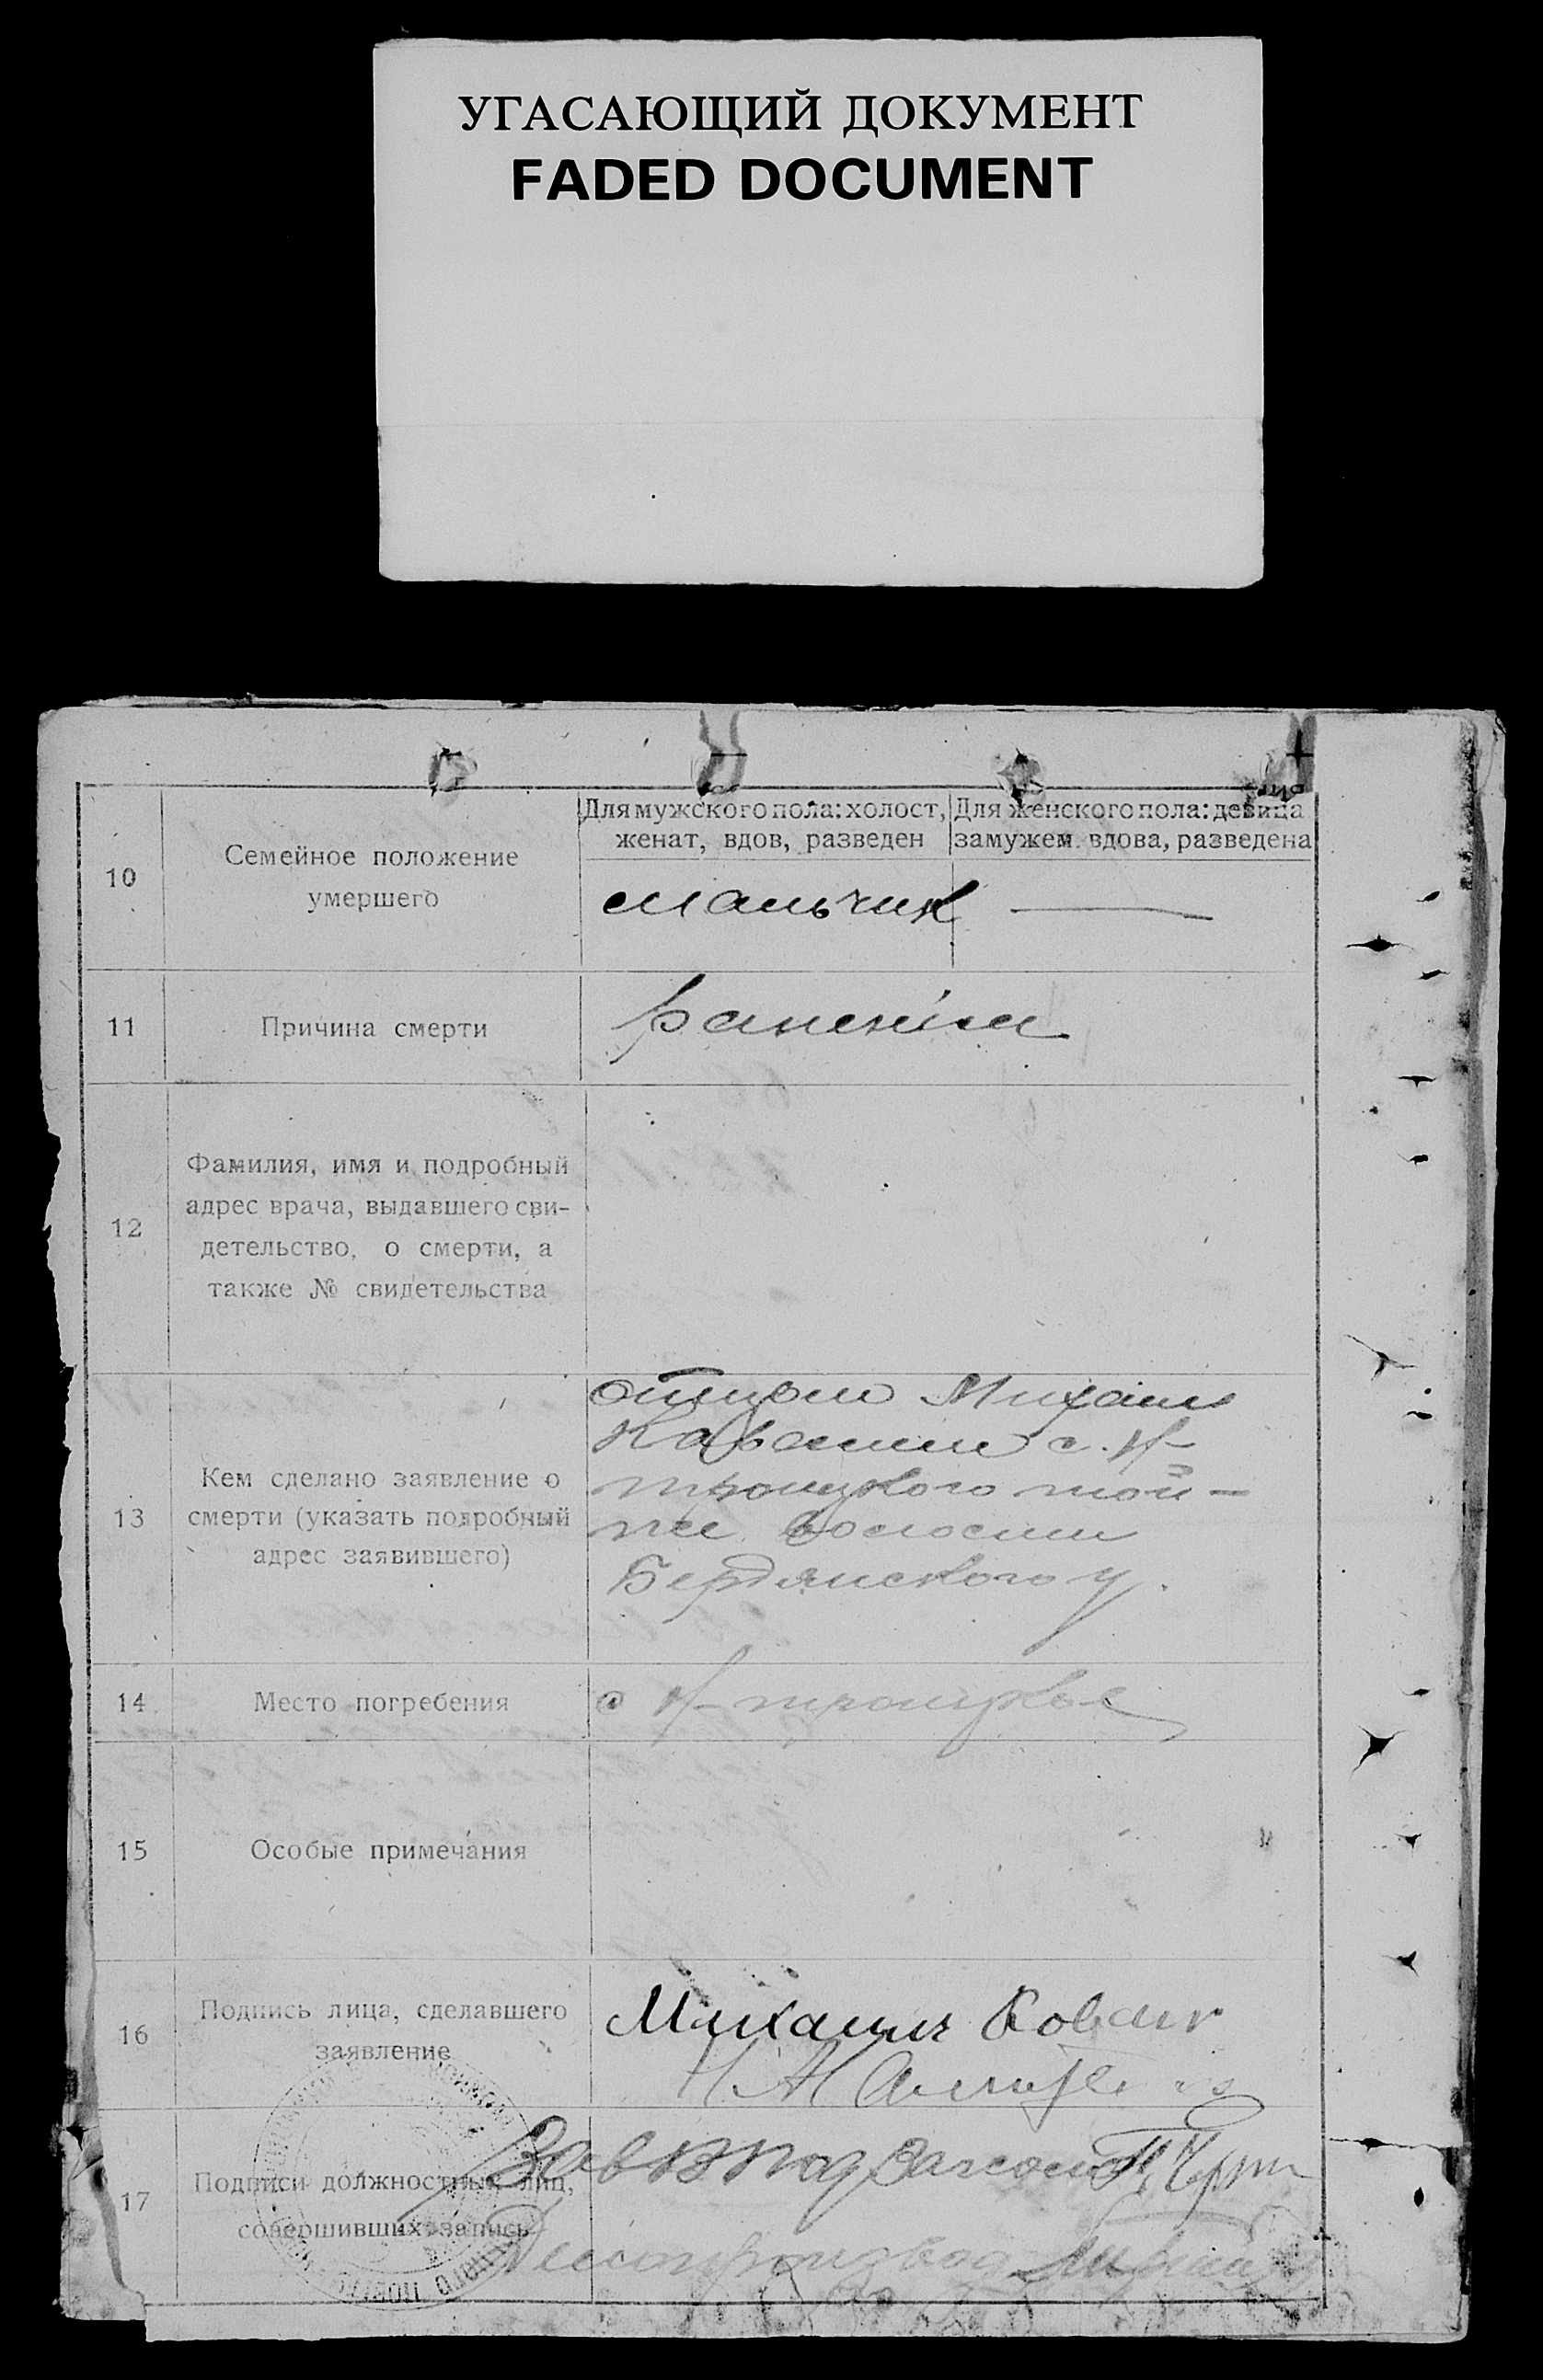 УГАСАЮЩИЙ ДОКУМЕНТ
FADED DOCUMENT
10
Семейное положение
умершего
Для мужского пола: холост,
женат, вдов, разведен
Для женского пола: девица
замужем. вдова, разведена
мальчик
11
Причина смерти
12
Фамилия, имя и подробный
адрес врача, выдавшего сви-
детельство, о смерти, а
также № свидетельства
13
Кем сделано заявление о
смерти (указать подробный
адрес заявившего)
отцом Михаил
с. Н-
троицкого той-
же волости
Бердянского у.
14
Место погребения
с Н-троицкое
15
Особые примечания
16
Подпись лица, сделавшего
заявление
Михаил
17
Подписи должностных лиц,
совершивших запись
Зав
Делопроизвод